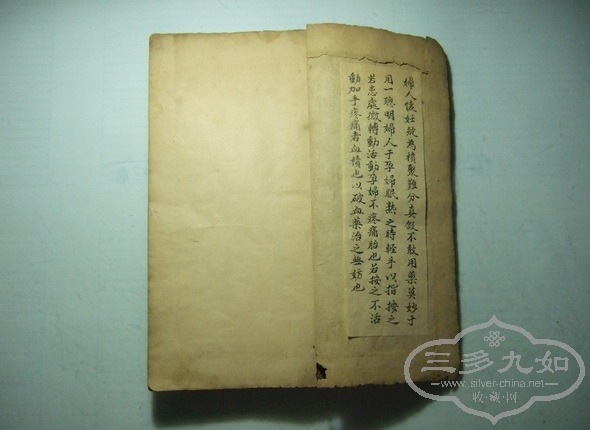 婦人懷妊疑為積聚難分真假不敢用藥莫妙于
用一聰明婦人于孕婦眠熟之時輕手以指按之
若患處微轉動活動孕婦不疼痛胎也若按之不活
動加乎疼痛者血積也以破血藥治之無妨也
三多九如
www.silver-china.net
收·藏·网